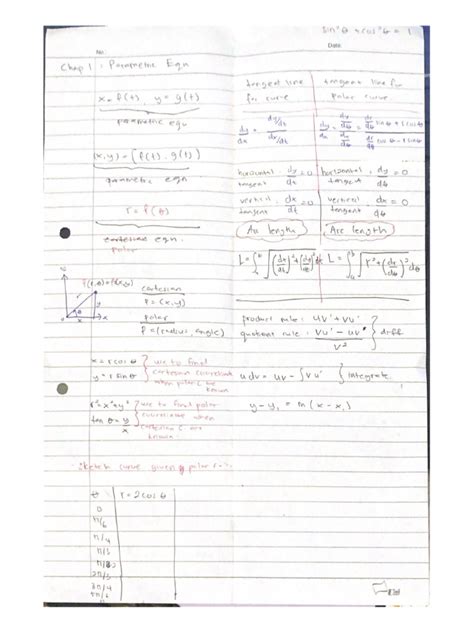 sin²θ + cos²θ = 1
No.
Date
Chap 1 : Parametric Eqn
x = f(t), y = g(t)
parametric eqn
(x,y) = (f(t), g(t))
parametric eqn
r = f(θ)
cartesian eqn.
polar
cartesian
P = (x,y)
polar
P = (radius, angle)
x = r cos θ
y = r sin θ
use to find
cartesian coordinate
when polar C are
known
r² = x² + y²
tan θ = y/x
use to find polar
coordinate when
cartesian C are
known
sketch curve given polar
θ
r = 2 cos θ
0
π/6
π/4
π/3
π/2
2π/3
3π/4
5π/6
tangent line
for curve
dy/dx = (dy/dt)/(dx/dt)
horizontal tangent : dy/dt = 0
vertical tangent : dx/dt = 0
Arc length
tangent line for
polar curve
dy/dx = (dy/dθ)/(dx/dθ) = (dr/dθ sin θ + r cos θ)/(dr/dθ cos θ - r sin θ)
horizontal tangent : dy/dθ = 0
vertical tangent : dx/dθ = 0
Arc length
L = ∫ₐᵇ √((dx/dt)² + (dy/dt)²) dt
L = ∫ₐᵇ √(r² + (dr/dθ)²)
product rule : uv' + vu'
quotient rule : (vu' - uv')/v²
} diff
udv = uv - ∫vu' } integrate
y - y₁ = m (x - x₁)